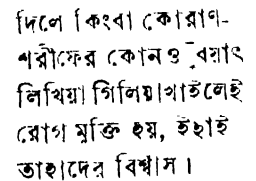 দিলে কিংবা কোরাণ-
শরীফের কোনও বয়াৎ
লিখিয়া গিলিয়া খাইলেই
রোগ মুক্তি হয়, ইহাই
তাহাদের বিশ্বাস ।